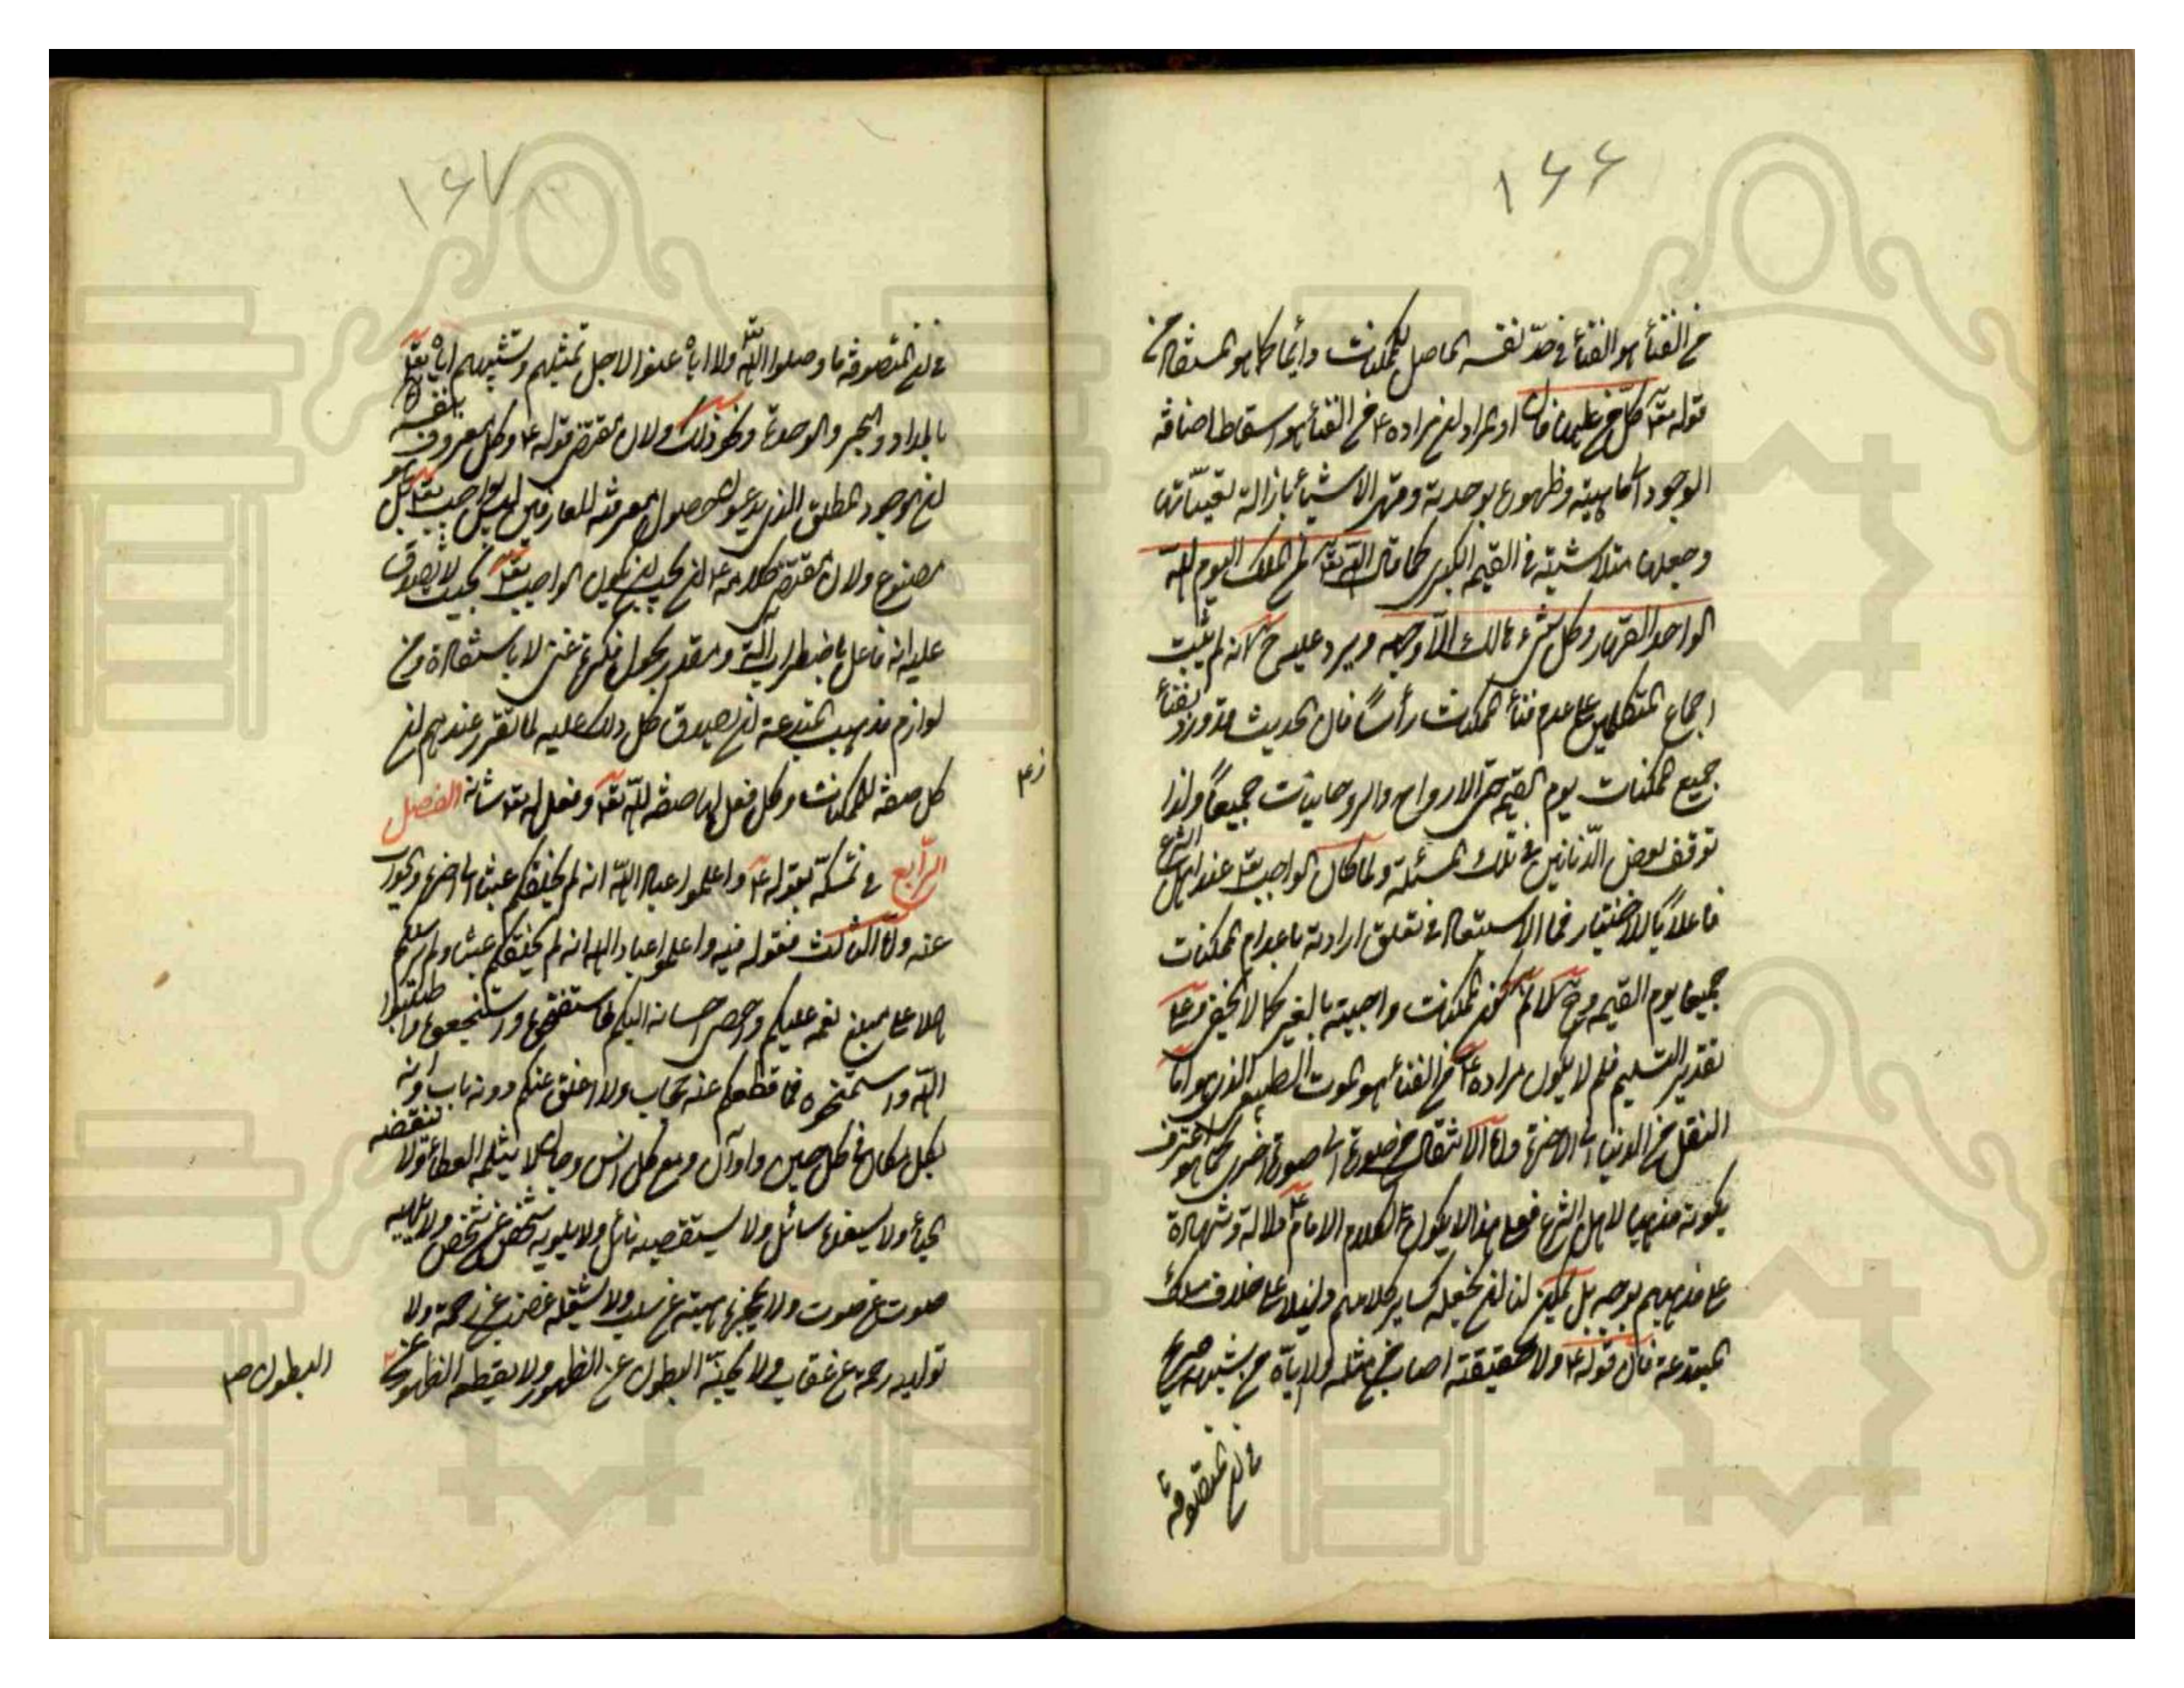 ۱۶۶
من الفناء هو الفناء في حدّ نفسه الحاصل للممكنات دائما كما هو المستفاد من
قوله تعـ كلّ من عليها فان او المراد ان مراده ع من الفناء هو اسقاط اضافة
الوجود الى الماهية وظهوره بوحدته وقهر الاشياء بازالة تعيّناتها
وجعلها متلاشية في القيمة الكبرى كما قال الله تعـ لمن الملك اليوم لله
الواحد القهار وكل شيء هالك الّا وجهه ويرد عليه ح لانه لم يثبت
اجماع المتكلمين على عدم فناء الممكنات رأساً فان الحديث قد ورد بفناء
جميع الممكنات يوم القيمة حتى الارواح والروحانيات جميعاً ولذا
توقف بعض في تلك المسئلة ولما كان الواجب تعـ عند اهل الشرع
فاعلاً بالاختيار فما الاستبعاد في تعلق ارادته باعدام الممكنات
جميعا يوم القيمة و لم تكن الممكنات واجبة بالغير كما لا يخفى وعلى
تقدير التسليم فلم لا يكون مراده ع من الفناء هو الموت الطبيعي الذي هو اما
النقل من الدنيا الى الاخرة واما الانتقال من صورة الى صورة اخرى كما هو اعترف
بكونه مذهبا لاهل الشرع فعلى هذا لا يكون لكلام الامام ع دلالة وشهادة
على مذهبهم بوجه بل يمكن لنا ان نجعله كساير كلامهم دليلا على خلاف مسلك
المبتدعة فان قوله ع ولا حقيقته اصاب من مثله ولا اياه من شبهه صريح
في ان المتصوفة ما
۱۶۷
في ان المتصوفة ما وصلوا الله ولا اياه عنوا لاجل تمثيلهم وتشبيههم اياه تعـ
بالمداد والبحر والوحدة ونحو ذلك ولان مقتضى قوله ع وكل معروف بنفسه
ان الوجود المطلق الذي يدعون حصول معرفته للعارفين ليس بواجب تعـ بل هو
مصنوع ولان مقتضى كلامه ع ان يجب ان يكون الواجب تعـ بحيث لا يصدق
عليه انه فاعل باضطراب آلة ومقدر بجول فكرة غني لا باستفادة ومن
لوازم مذهب المبتدعة ان يصدق كل ذلك عليه لما تقرر عندهم ان
كل صفة للممكنات وكل فعل لها صفة لله تعـ وفعل له تعـ شانه الفصل
الرّابع في تمسكه بقوله ع واعلموا عباد الله انه لم يخلقكم عبثا الى اخره والجواب
عنه واما الثالث فقوله فيه واعلموا عباد الله انه لم يخلقكم عبثا ولم يرسلكم
هملا علم مبلغ نعمه عليكم واحصى احسانه اليكم فاستفتحوه واستنجحوه واطلبوا
الله واستمنحوه فما قطعكم عنه حجاب ولا اغلق عنكم دونه باب وانه
لبكل مكان في كل حين واوان ومع كل انس وجان لا يثلمه العطاء ولا ينقصه
الحباء ولا يستنفده سائل ولا يستقصيه نائل ولا يلويه شخص عن شخص ولا يلهيه
صوت عن صوت ولا يحجزه هبة عن سلب ولا يشغله غضب عن رحمة ولا
تولهه رحمة عن عقاب ولا يجنّه البطون عن الظهور ولا يقطعه الظهور عن
البطون ص